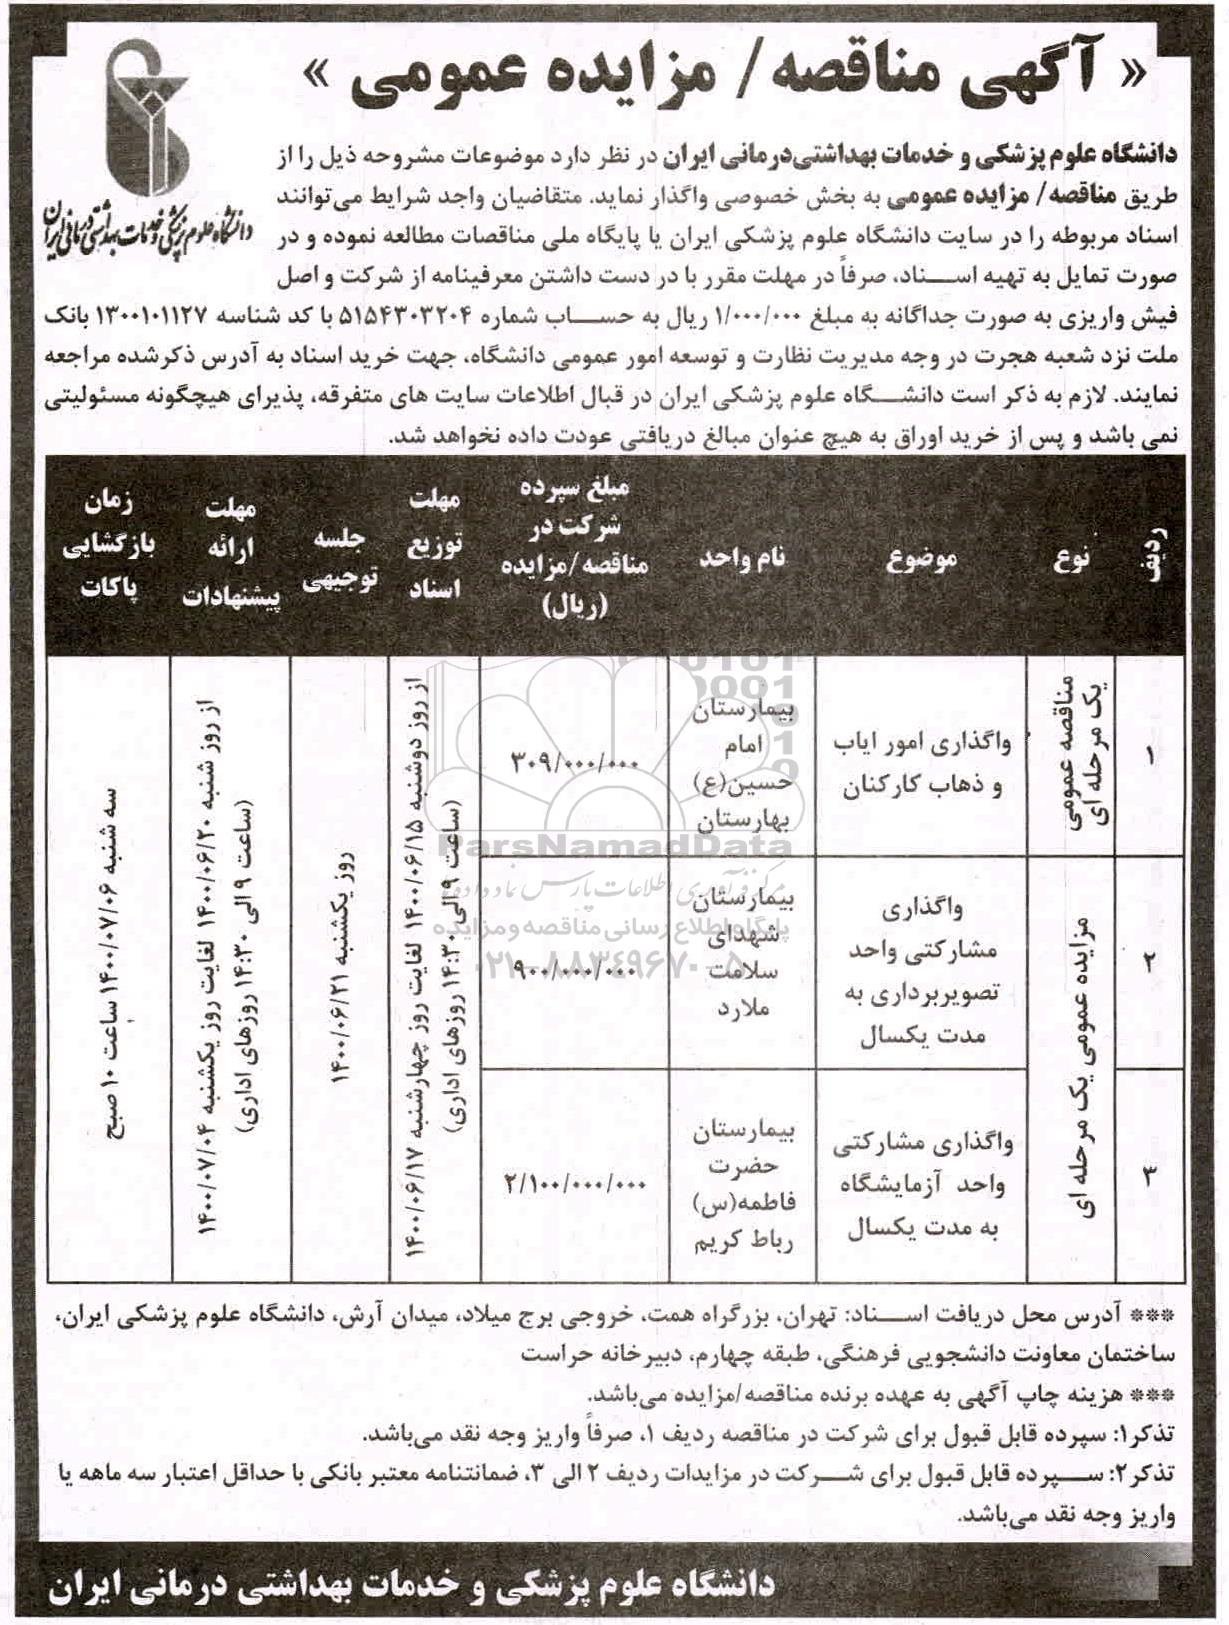 « آگهی مناقصه/ مزایده عمومی »
دانشگاه علوم پزشکی و خدمات بهداشتی درمانی ایران
دانشگاه علوم پزشکی و خدمات بهداشتی‌درمانی ایران در نظر دارد موضوعات مشروحه ذیل را از
طریق مناقصه/ مزایده عمومی به بخش خصوصی واگذار نماید. متقاضیان واجد شرایط می‌توانند
اسناد مربوطه را در سایت دانشگاه علوم پزشکی ایران یا پایگاه ملی مناقصات مطالعه نموده و در
صورت تمایل به تهیه اسناد، صرفاً در مهلت مقرر با در دست داشتن معرفینامه از شرکت و اصل
فیش واریزی به صورت جداگانه به مبلغ ۱/۰۰۰/۰۰۰ ریال به حساب شماره ۵۱۵۴۳۰۳۲۰۴ با کد شناسه ۱۳۰۰۱۰۱۱۲۷ بانک
ملت نزد شعبه هجرت در وجه مدیریت نظارت و توسعه امور عمومی دانشگاه، جهت خرید اسناد به آدرس ذکرشده مراجعه
نمایند. لازم به ذکر است دانشگاه علوم پزشکی ایران در قبال اطلاعات سایت های متفرقه، پذیرای هیچگونه مسئولیتی
نمی باشد و پس از خرید اوراق به هیچ عنوان مبالغ دریافتی عودت داده نخواهد شد.
ردیف
نوع
موضوع
نام واحد
مبلغ سپرده
شرکت در
مناقصه /مزایده
(ریال)
مهلت
توزیع
اسناد
جلسه
توجیهی
مهلت
ارائه
پیشنهادات
زمان
بازگشایی
پاکات
۱
مناقصه عمومی
یک مرحله ای
واگذاری امور ایاب
و ذهاب کارکنان
بیمارستان
امام
حسین(ع)
بهارستان
۳۰۹/۰۰۰/۰۰۰
از روز دوشنبه ۱۴۰۰/۰۶/۱۵ لغایت روز چهارشنبه ۱۴۰۰/۰۶/۱۷
(ساعت ۹ الی ۱۴:۳۰ روزهای اداری)
روز یکشنبه ۱۴۰۰/۰۶/۲۱
از روز شنبه ۱۴۰۰/۰۶/۲۰ لغایت روز یکشنبه ۱۴۰۰/۰۷/۰۴
(ساعت ۹ الی ۱۴:۳۰ روزهای اداری)
سه شنبه ۱۴۰۰/۰۷/۰۶ ساعت ۱۰ صبح
۲
مزایده عمومی یک مرحله ای
واگذاری
مشارکتی واحد
تصویربرداری به
مدت یکسال
بیمارستان
شهدای
سلامت
ملارد
۹۰۰/۰۰۰/۰۰۰
۳
واگذاری مشارکتی
واحد آزمایشگاه
به مدت یکسال
بیمارستان
حضرت
فاطمه(س)
رباط کریم
۲/۱۰۰/۰۰۰/۰۰۰
ParsNamadData
مرکز فرآوری اطلاعات پارس نماد داده ها
پایگاه اطلاع رسانی مناقصه و مزایده
۰۲۱-۸۸۳۴۹۶۷۰-۵
*** آدرس محل دریافت اسناد: تهران، بزرگراه همت، خروجی برج میلاد، میدان آرش، دانشگاه علوم پزشکی ایران،
ساختمان معاونت دانشجویی فرهنگی، طبقه چهارم، دبیرخانه حراست
*** هزینه چاپ آگهی به عهده برنده مناقصه/مزایده می‌باشد.
تذکر۱: سپرده قابل قبول برای شرکت در مناقصه ردیف ۱، صرفاً واریز وجه نقد می‌باشد.
تذکر۲: سپرده قابل قبول برای شرکت در مزایدات ردیف ۲ الی ۳، ضمانتنامه معتبر بانکی با حداقل اعتبار سه ماهه یا
واریز وجه نقد می‌باشد.
دانشگاه علوم پزشکی و خدمات بهداشتی درمانی ایران